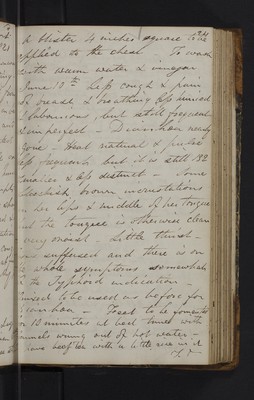 A blister 4 inches square to be
applied to the chest. To wash
with warm water & vinegar
June 13th Less cough & pain
breathing less hurried
& laborious, but still frequent
& imperfect - Diarrhoea nearly
gone - Heat natural & pulse
less frequent but it is still 132
& less distinct - Some
brown incrustations
on her lips & middle of her tongue
but the tongue is otherwise clean
moist. Little thirst -
suffused and there is on
the whole symptoms somewhat
of the Typhoid indication -
to be used as before for
Feet to be fomented
for 15 minutes at bed time with
flannels wrung out of hot water -
have beef tea with a little rice in it